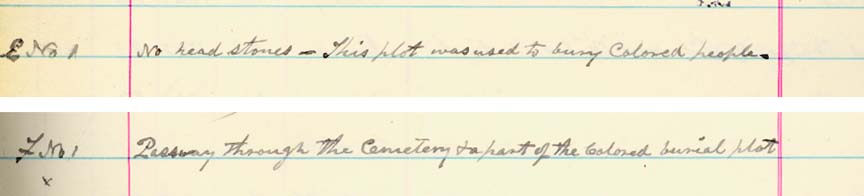 E No 1 No head stones - This plot was used to bury Colored people.
F No 1 Passway through the Cemetery & a part of the Colored burial plot
x